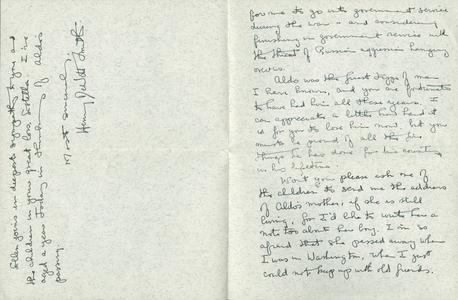 for me to go into government service
during the war - and considering
functioning in government service with
the threat of Russian aggression hanging
over us.
Aldo was the finest type of man
I have known, and you are fortunate
to have had him all these years. I
can appreciate a little how hard it
is for you to lose him now, but you
must be proud of all the fine
things he has done for his country
in his lifetime.
Won't you please ask one of
the children to send me the address
of Aldo's mother, if she is still
living, for I'd like to write her a
note too about her boy. I'm so
afraid that she passed away when
I was in Washington, when I just
could not keep up with old friends.
Ellen joins in deepest sympathy to you and
the children in your great loss Estella. I've
aged a years today in thinking of Aldo's
passing.
Most sincerely,